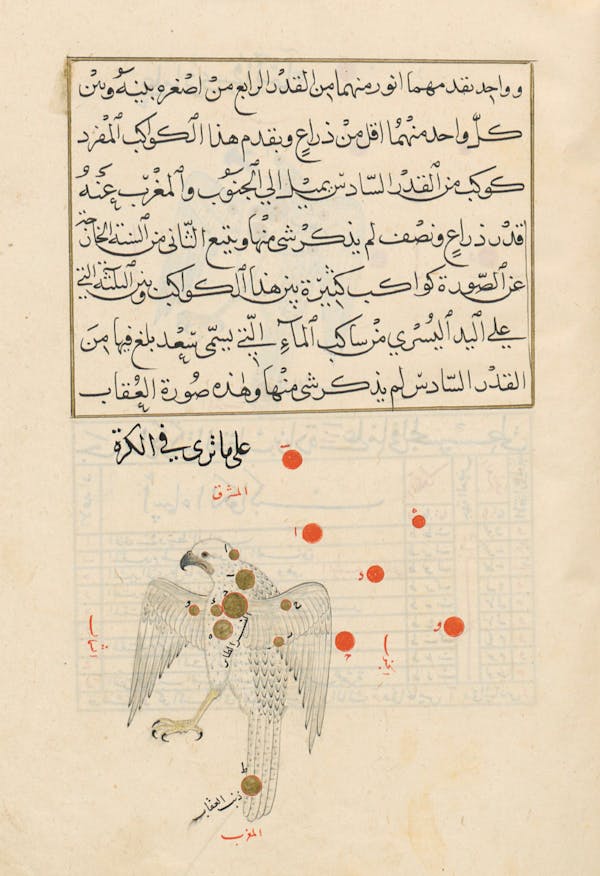 وواحد تقدمهما انور منهما من القدر الرابع من اصغره بينه وبين
كل واحد منهما اقل من ذراع ويقدم هذا الكواكب المفرد
كوكب من القدر السادس يميل الي الجنوب والمغرب عنه
قدر ذراع ونصف لم يذكر شي منها ويتبع الثاني من الستة الخارجة
عن الصورة كواكب كثيرة بين هذا الكواكب وبين الثلثة التي
علي اليد اليسري من ساكب المآء التي يسمي سعد بلع فيها من
القدر السادس لم يذكر شي منها وهذه صورة العقاب
علي ما تري في الكرة
المشرق
النسر الطائر
الجنوب
ذنب العقاب
المغرب